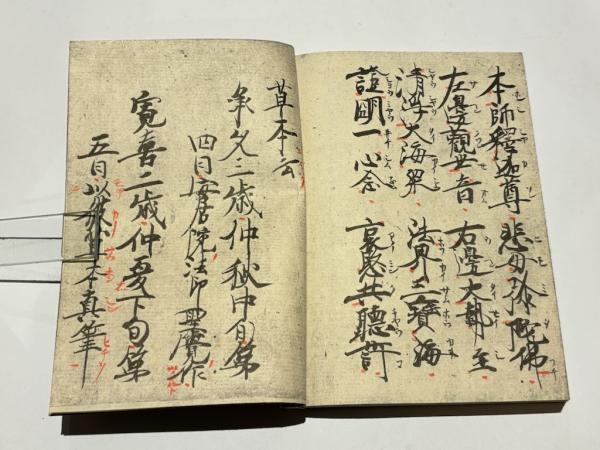 本師釋迦尊 悲母弥陀佛
左邊觀世音 右邊大勢至
清浄大海衆 法界三寶海
證明一心念 哀愍共聽許
草本云
承久三歳仲秋中旬第
四日安居院法印聖覺作
寛喜二歳仲夏下旬第
五日以彼草本真筆